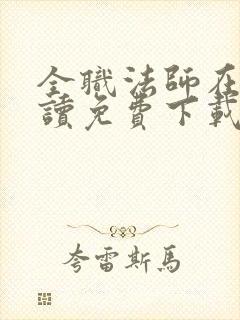 全職法師在
讀免費下載
夸雷斯馬